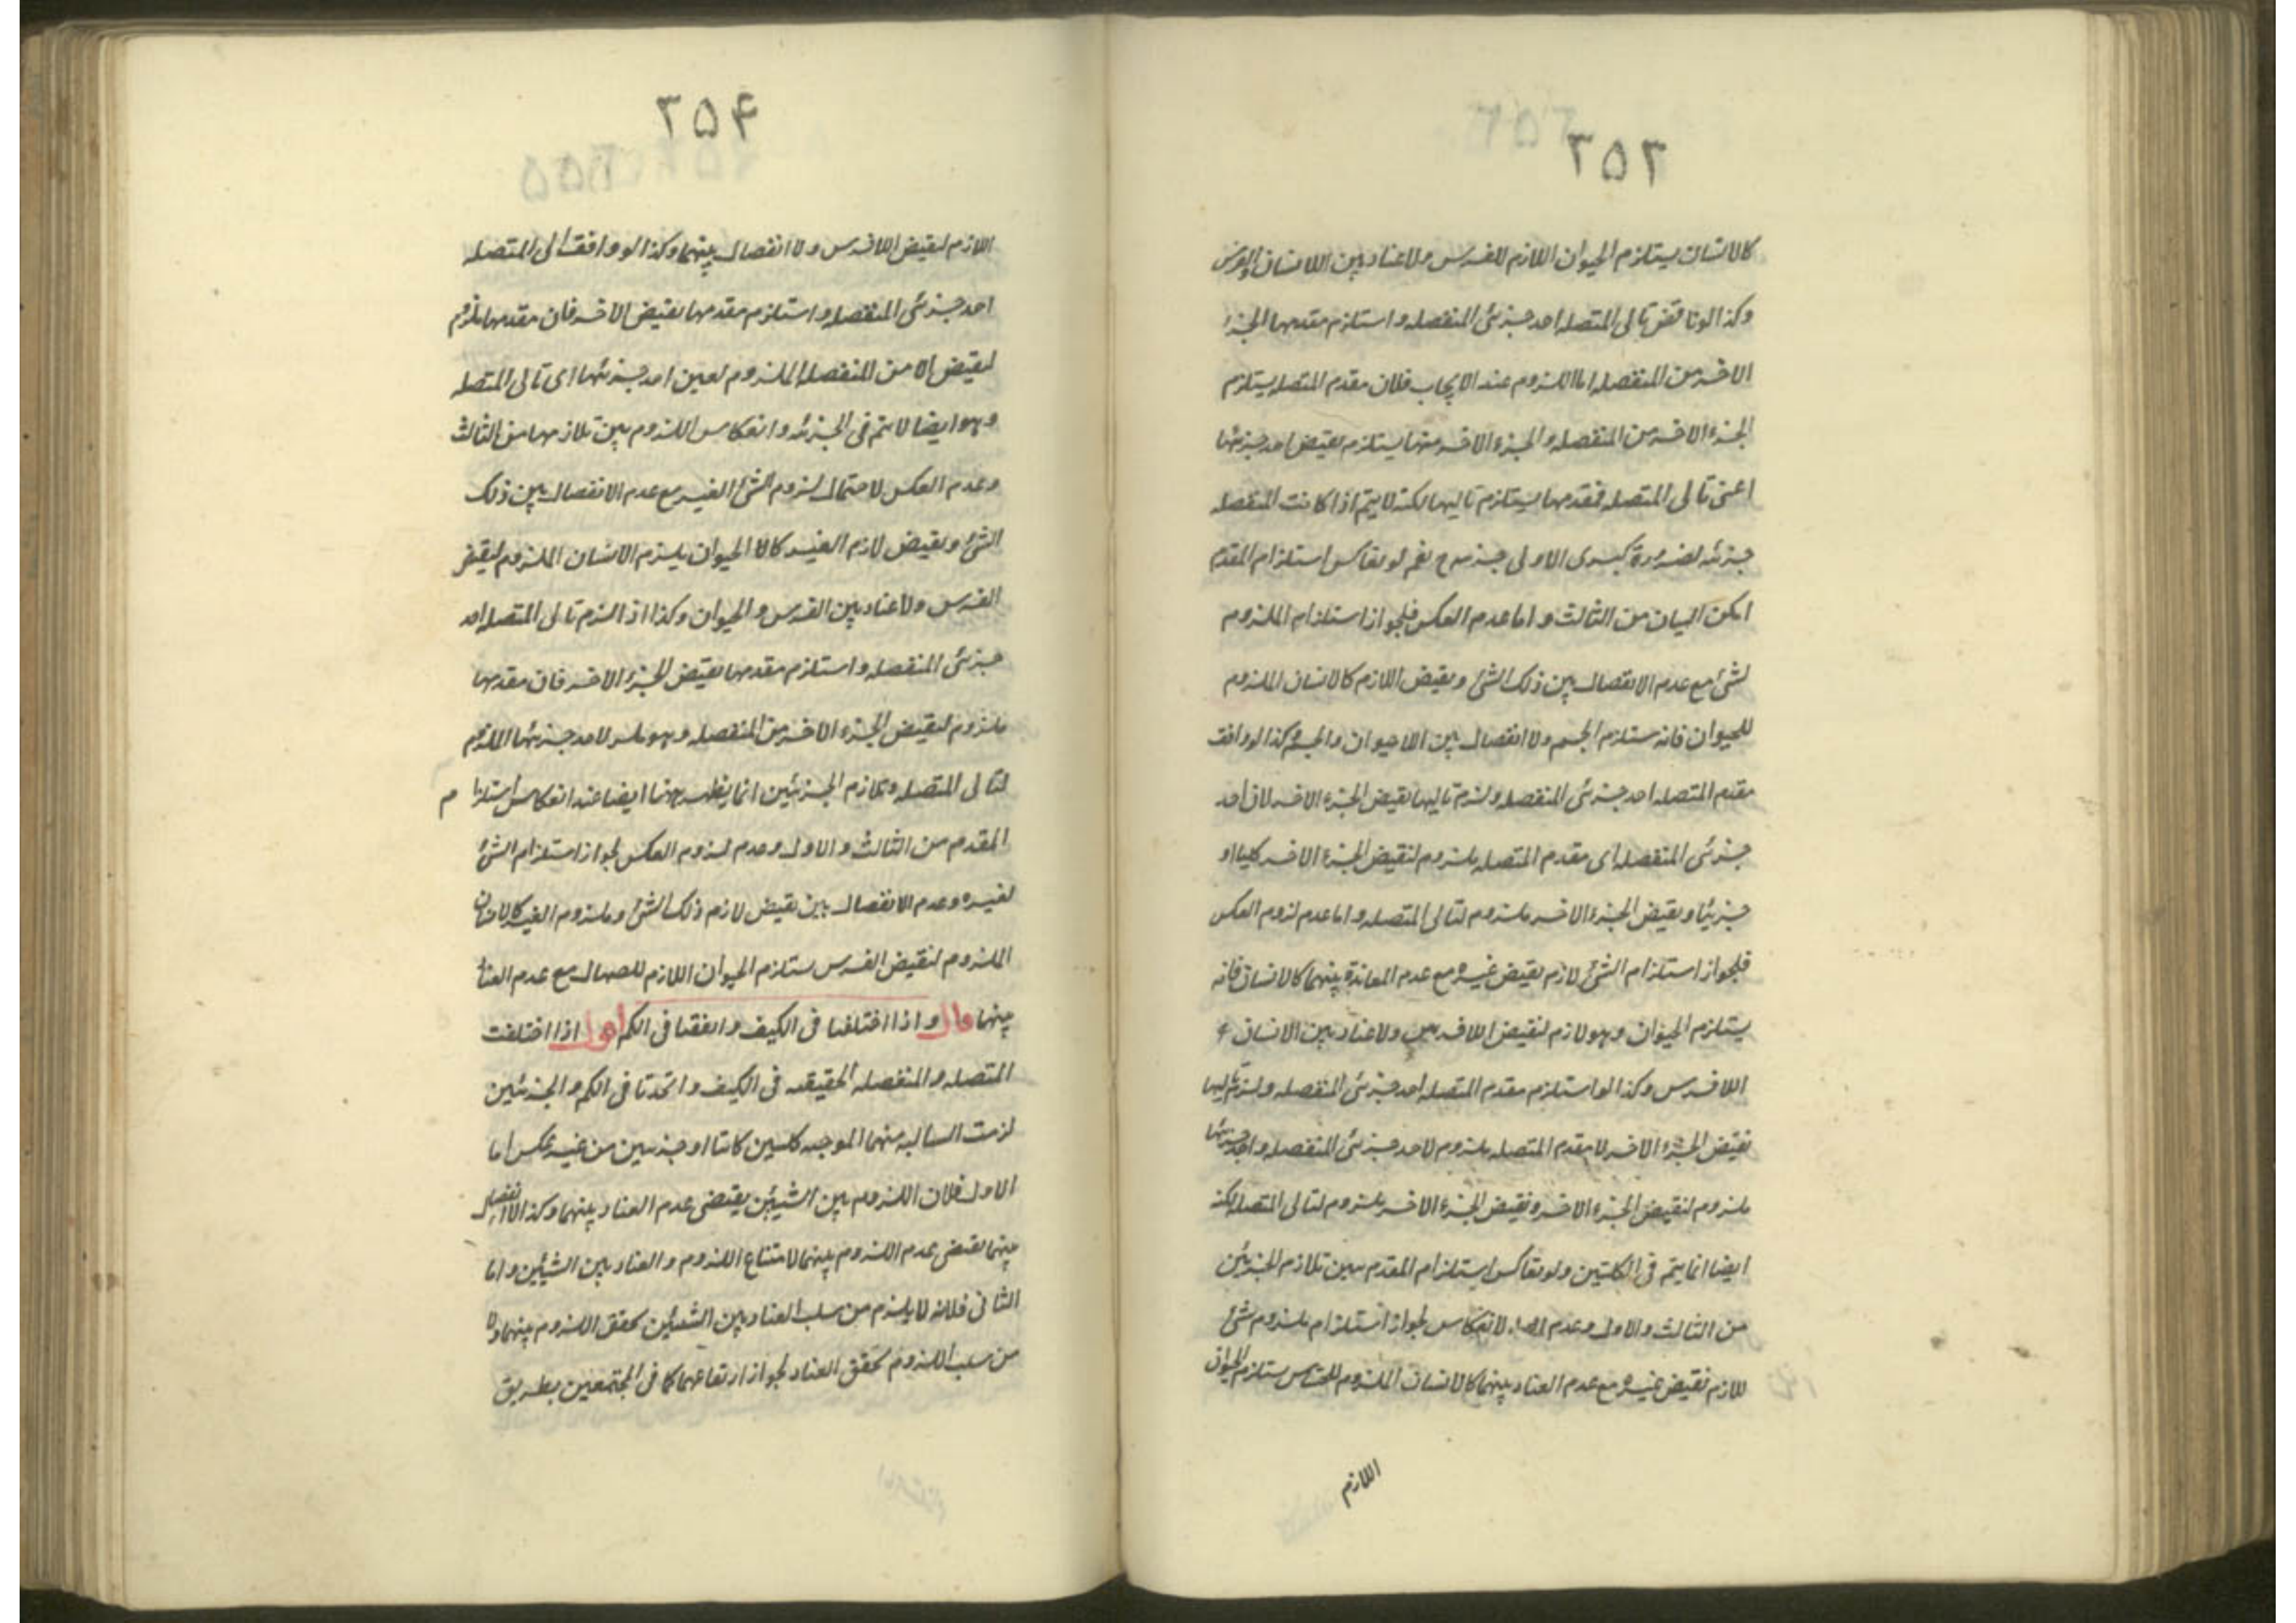 ۲۵۳
كالانسان يستلزم الحيوان اللازم للفرس ولا عناد بين اللاانسان والفرس
وكذا لو ناقض تالى المتصله احد جزئى المنفصله و استلزم مقدمها الجزء
الاخر من المنفصله اما اللزوم عند الايجاب فلان مقدم المتصله يستلزم
الجزء الاخر من المنفصله والجزء الاخر منها يستلزم نقيض احد جزئيها
اعنى تالى المتصله فمقدمها يستلزم تاليها لكنه لا يتم اذا كانت المنفصله
جزئه لضرورة كبرى الاولى جزئيه ح نعم لو تعاكس استلزام المقدم
امكن البيان من الثالث و اما عدم العكس فلجواز استلزام الملزوم
لشئ مع عدم الانفصال بين ذلك الشئ و نقيض اللازم كالانسان الملزوم
للحيوان فانه ستلزم الجسم ولا انفصال بين اللاحيوان والجسم وكذا لو وافق
مقدم المتصله احد جزئى المنفصله و لزم تاليها نقيض الجزء الاخر لان احد
جزئى المنفصله اى مقدم المتصله ملزوم لنقيض الجزء الاخر كليا او
جزئيا و نقيض الجزء الاخر ملزوم لتالى المتصله و اما عدم لزوم العكس
فلجواز استلزام الشئ لازم نقيض غيره مع عدم المعاندة بينهما كالانسان فانه
يستلزم الحيوان و هو لازم لنقيض اللافرس ولا عناد بين الانسان و
اللافرس وكذا لو استلزم مقدم المتصله احد جزئى المنفصله و لزم تاليها
نقيض الجزء الاخر لا مقدم المتصله ملزوم لاحد جزئى المنفصله و احد جزئيها
ملزوم لنقيض الجزء الاخر و نقيض الجزء الاخر ملزوم لتالى المتصله لكنه
ايضا انما يتم فى الكلتين ولو تعاكس استلزام المقدم بين تلازم الجزئين
من الثالث والاول و عدم لانعكاس لجواز استلزام ملزوم شئ
للازم نقيض غيره مع عدم العناد بينهما كالانسان الملزوم للحساس ستلزم الحيوان
اللازم
۲۵۴
اللازم لنقيض اللافرس ولا انفصال بينهما وكذا لو وافق تالى المتصله
احد جزئى المنفصله و استلزم مقدمها نقيض الاخر فان مقدمها ملزوم
لنقيض الا من المنفصله الملزوم لعين احد جزئيها اى تالى المتصله
و هو ايضا لا يتم فى الجزئه و انعكاس اللزوم بين تلازمهما من الثالث
و عدم العكس لاحتمال لزوم الشئ الغير مع عدم الانفصال بين ذلك
الشئ و نقيض لازم الغير كالا الحيوان يلزم الانسان الملزوم لنقيض
الفرس ولا عناد بين الفرس و الحيوان وكذا اذ الزم تالى المتصله احد
جزئى المنفصله و استلزم مقدمها نقيض الجزء الاخر فان مقدمها
ملزوم لنقيض الجزء الاخر من المنفصله و هو ملزوم لاحد جزئيها الملزوم
لتالى المتصله و تلازم الجزئيين انما يظهر ههنا ايضا عند انعكاس استلزا م
المقدم من الثالث و الاول و عدم لزوم العكس لجواز استلزام الشئ
لغيره و عدم الانفصال بين نقيض لازم ذلك الشئ و ملزوم الغير كالانسان
الملزوم لنقيض الفرس ستلزم الحيوان اللازم للصهال مع عدم العناد
بينهما قال و اذا اختلفتا فى الكيف و اتفقتا فى الكم اقول اذا اختلفت
المتصله و المنفصله الحقيقه فى الكيف و اتحدتا فى الكم و الجزئين
لزمت السالبه منهما الموجبه كلسين كانتا او جزئيين من غير عكس اما
الاول فلان اللزوم بين الشيئين يقتضى عدم العناد بينهما وكذا الانفصال
بينهما يقتضى عدم اللزوم بينهما لامتناع اللزوم و العناد بين الشيئين و اما
الثانى فلانه لا يلزم من سلب العناد بين الشيئين تحقق اللزوم بينهما ولا
من سلب اللزوم تحقق العناد لجواز ارتفاعهما كما فى المجتمعين بطريق